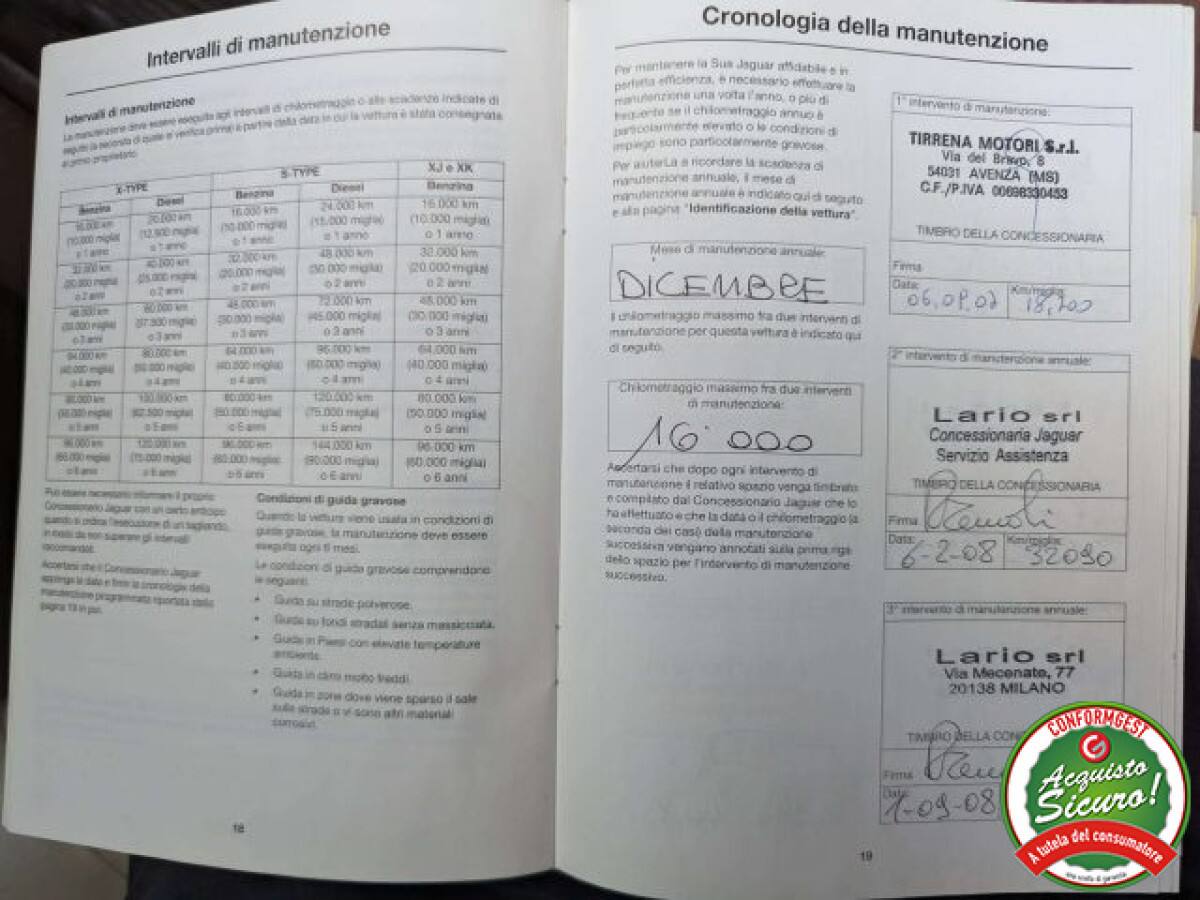 Intervalli di manutenzione
Intervalli di manutenzione
La manutenzione deve essere eseguita agli intervalli di chilometraggio o alle scadenze indicate di
seguito (a seconda di quale si verifica prima) a partire dalla data in cui la vettura è stata consegnata
al primo proprietario.
X-TYPE S-TYPE XJ e XK
Benzina Diesel Benzina Diesel Benzina
16.000 km 20.000 km 16.000 km 24.000 km 16.000 km
(10.000 miglia) (12.500 miglia) (10.000 miglia) (15.000 miglia) (10.000 miglia)
o 1 anno o 1 anno o 1 anno o 1 anno o 1 anno
32.000 km 40.000 km 32.000 km 48.000 km 32.000 km
(20.000 miglia) (25.000 miglia) (20.000 miglia) (30.000 miglia) (20.000 miglia)
o 2 anni o 2 anni o 2 anni o 2 anni o 2 anni
48.000 km 60.000 km 48.000 km 72.000 km 48.000 km
(30.000 miglia) (37.500 miglia) (30.000 miglia) (45.000 miglia) (30.000 miglia)
o 3 anni o 3 anni o 3 anni o 3 anni o 3 anni
64.000 km 80.000 km 64.000 km 96.000 km 64.000 km
(40.000 miglia) (50.000 miglia) (40.000 miglia) (60.000 miglia) (40.000 miglia)
o 4 anni o 4 anni o 4 anni o 4 anni o 4 anni
80.000 km 100.000 km 80.000 km 120.000 km 80.000 km
(50.000 miglia) (62.500 miglia) (50.000 miglia) (75.000 miglia) (50.000 miglia)
o 5 anni o 5 anni o 5 anni o 5 anni o 5 anni
96.000 km 120.000 km 96.000 km 144.000 km 96.000 km
(60.000 miglia) (75.000 miglia) (60.000 miglia) (90.000 miglia) (60.000 miglia)
o 6 anni o 6 anni o 6 anni o 6 anni o 6 anni
Può essere necessario informare il proprio
Concessionario Jaguar con un certo anticipo
quando si ordina l'esecuzione di un tagliando,
in modo da non superare gli intervalli
raccomandati.
Accertarsi che il Concessionario Jaguar
apponga la data e firmi la cronologia della
manutenzione programmata riportata dalla
pagina 19 in poi.
Condizioni di guida gravose
Quando la vettura viene usata in condizioni di
guida gravose, la manutenzione deve essere
eseguita ogni 6 mesi.
Le condizioni di guida gravose comprendono
le seguenti:
* Guida su strade polverose.
* Guida su fondi stradali senza massicciata.
* Guida in Paesi con elevate temperature
ambiente.
* Guida in climi molto freddi.
* Guida in zone dove viene sparso il sale
sulle strade o vi sono altri materiali
corrosivi.
18
Cronologia della manutenzione
Per mantenere la Sua Jaguar affidabile e in
perfetta efficienza, è necessario effettuare la
manutenzione una volta l'anno, o più di
frequente se il chilometraggio annuo è
particolarmente elevato o le condizioni di
impiego sono particolarmente gravose.
Per aiutarLa a ricordare la scadenza di
manutenzione annuale, il mese di
manutenzione annuale è indicato qui di seguito
e alla pagina "Identificazione della vettura".
Mese di manutenzione annuale:
DICEMBRE
Il chilometraggio massimo fra due interventi di
manutenzione per questa vettura è indicato qui
di seguito.
Chilometraggio massimo fra due interventi
di manutenzione:
16.000
Accertarsi che dopo ogni intervento di
manutenzione il relativo spazio venga timbrato
e compilato dal Concessionario Jaguar che lo
ha effettuato e che la data o il chilometraggio (a
seconda dei casi) della manutenzione
successiva vengano annotati sulla prima riga
dello spazio per l'intervento di manutenzione
successivo.
1° intervento di manutenzione:
TIRRENA MOTORI S.r.l.
Via del Bravo, 8
54031 AVENZA (MS)
C.F./P.IVA 00696330453
TIMBRO DELLA CONCESSIONARIA
Firma
Data: Km/miglia:
06.09.07 18.200
2° intervento di manutenzione annuale:
Lario srl
Concessionaria Jaguar
Servizio Assistenza
TIMBRO DELLA CONCESSIONARIA
Firma
Data: Km/miglia:
6-2-08 32090
3° intervento di manutenzione annuale:
Lario srl
Via Mecenate, 77
20138 MILANO
TIMBRO DELLA
Firma
Data:
1-09-08
19
CONFORMGEST
Acquisto
Sicuro!
A tutela del consumatore